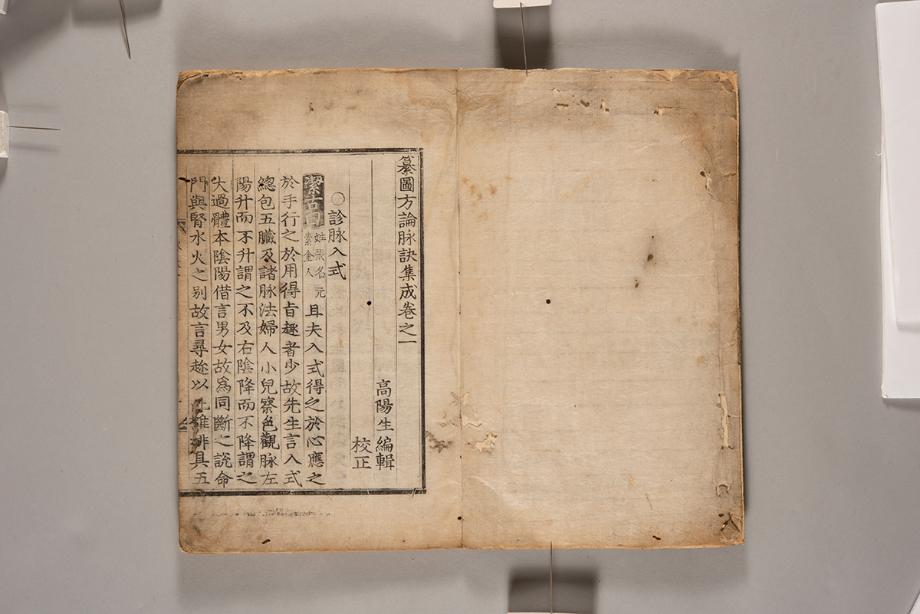 纂圖方論脉訣集成卷之一
高陽生編輯
校正
○診脉入式
潔古曰姓張名元素金人且夫入式得之於心應之
於手行之於用得旨趣者少故先生言入式
總包五臟及諸脉法婦人小兒察色觀脉左
陽升而不升謂之不及右陰降而不降謂之
大過體本陰陽借言男女故爲同斷之說命
門與腎水火之别故言尋趁以
雖非具五